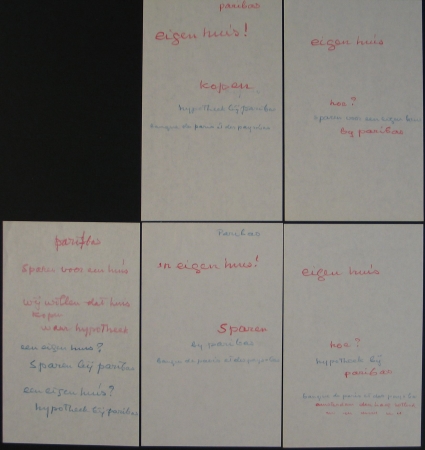 paribas
eigen huis!
kopen
hypotheek bij paribas
banque de paris et des pays bas
eigen huis
hoe?
sparen voor een eigen huis
bij paribas
paribas
Sparen voor een huis
wij wilden dat huis
kopen
maar hypotheek
een eigen huis?
Sparen bij paribas
een eigen huis?
hypotheek bij paribas
Paribas
'n eigen huis!
Sparen
bij paribas
banque de paris et des pays bas
eigen huis
hoe?
hypotheek bij
paribas
banque de paris et des pays bas